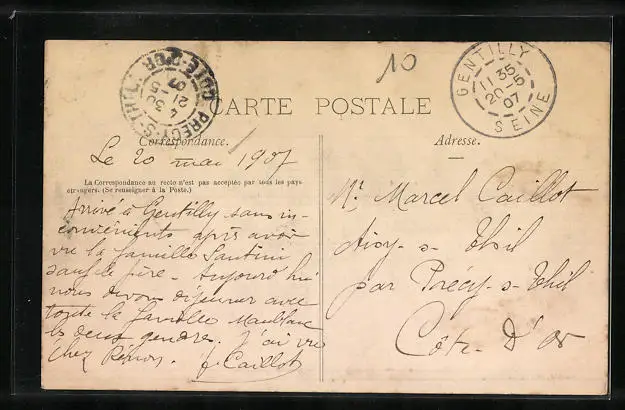 10
GENTILLY
11 35
20-5
07
SEINE
PRECY-S-THIL
CÔTE-D'OR
4 30
21-5
07
CARTE POSTALE
Correspondance.
Adresse.
Le 20 mai 1907
La Correspondance au recto n'est pas acceptée par tous les pays
étrangers. (Se renseigner à la Poste.)
Arrivé à Gentilly sans in-
convénients après avoir
vu la famille Santini
sauf le père - Aujourd'hui
nous devons déjeuner avec
toute la famille
les deux gendres. J'ai vu
chez
J. Caillot
Mr. Marcel Caillot
Aisy-s-Thil
par Précy-s-Thil
Côte-D'Or